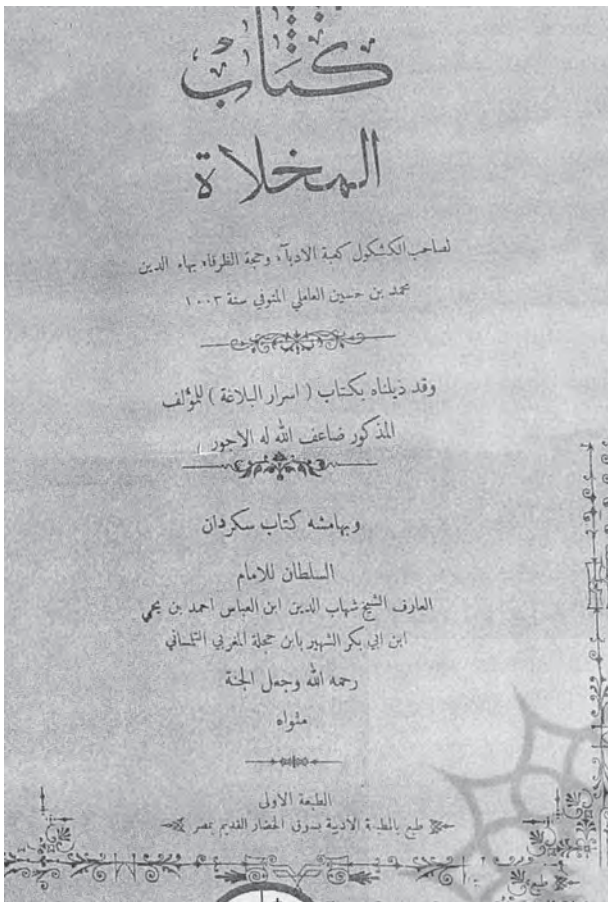 كتاب
المخلاة
لصاحب الكشكول كعبة الادبآء وحجة الظرفاء بهاء الدين
محمد بن حسين العاملي المتوفي سنة ١٠٠٣
وقد ذيلناه بكتاب ( اسرار البلاغة ) للمؤلف
المذكور ضاعف الله له الاجور
وبهامشه كتاب سكردان
السلطان للامام
العارف الشيخ شهاب الدين ابن العباس احمد بن يحي
ابن ابي بكر الشهير بابن حجلة المغربي التلمساني
رحمه الله وجعل الجنة
مثواه
الطبعة الاولى
طبع بالمطبعة الادبية بسوق الخضار القديم بمصر
طبع